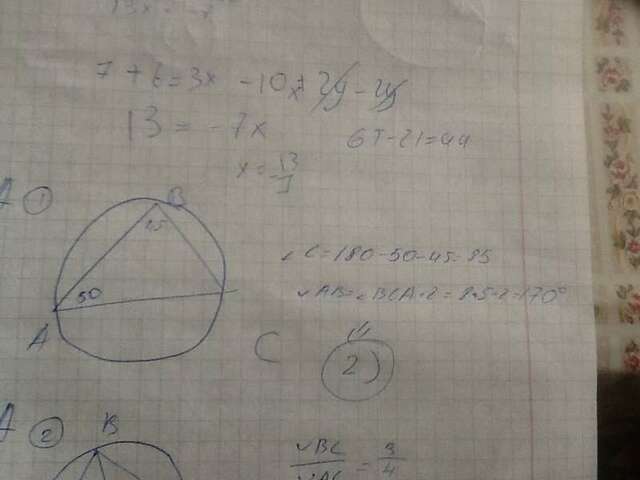 7 + 6 = 3x - 10x + 2y - 2y
13 = - 7x
65 - 21 = 44
x = 13
A 1
B
45
50
A
C
∠C = 180 - 50 - 45 = 85
◡AB = ∠BCA · 2 = 85 · 2 = 170°
2)
A 2
B
◡BC
◡AC
= 3
4